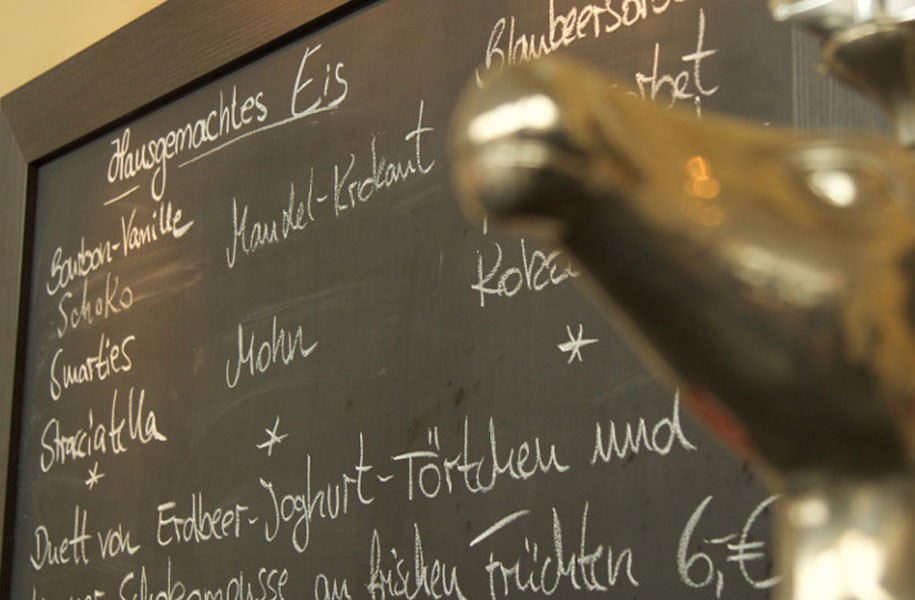 Hausgemachtes Eis
Bourbon-Vanille
Schoko
Smarties
Stracciatella
*
Mandel-Krokant
Mohn
*
Blaubeersorbet
*
Duett von Erdbeer-Joghurt-Törtchen und
Schokomousse an frischen Früchten 6,-€